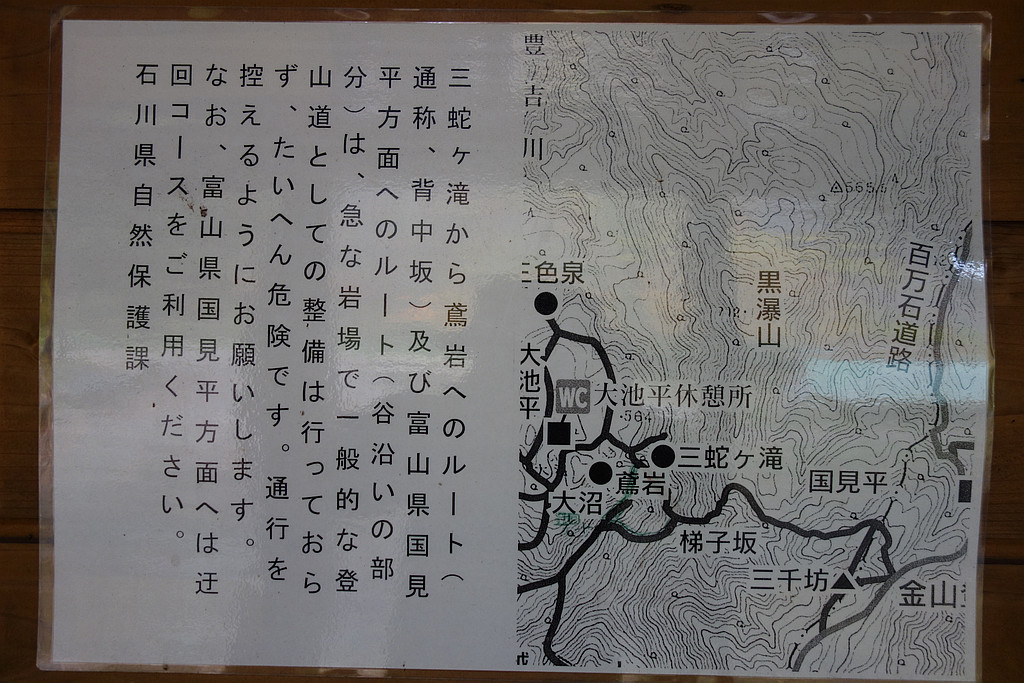 三蛇ヶ滝から鳶岩へのルート（
通称、背中坂）及び富山県国見
平方面へのルート（谷沿いの部
分）は、急な岩場で一般的な登
山道としての整備は行っておら
ず、たいへん危険です。通行を
控えるようにお願いします。
なお、富山県国見平方面へは迂
回コースをご利用ください。
石川県自然保護課
川
565.5
百万石道路
黒瀑山
三色泉
大池平
WC
大池平休憩所
564
三蛇ヶ滝
鳶岩
大沼
国見平
梯子坂
三千坊
金山